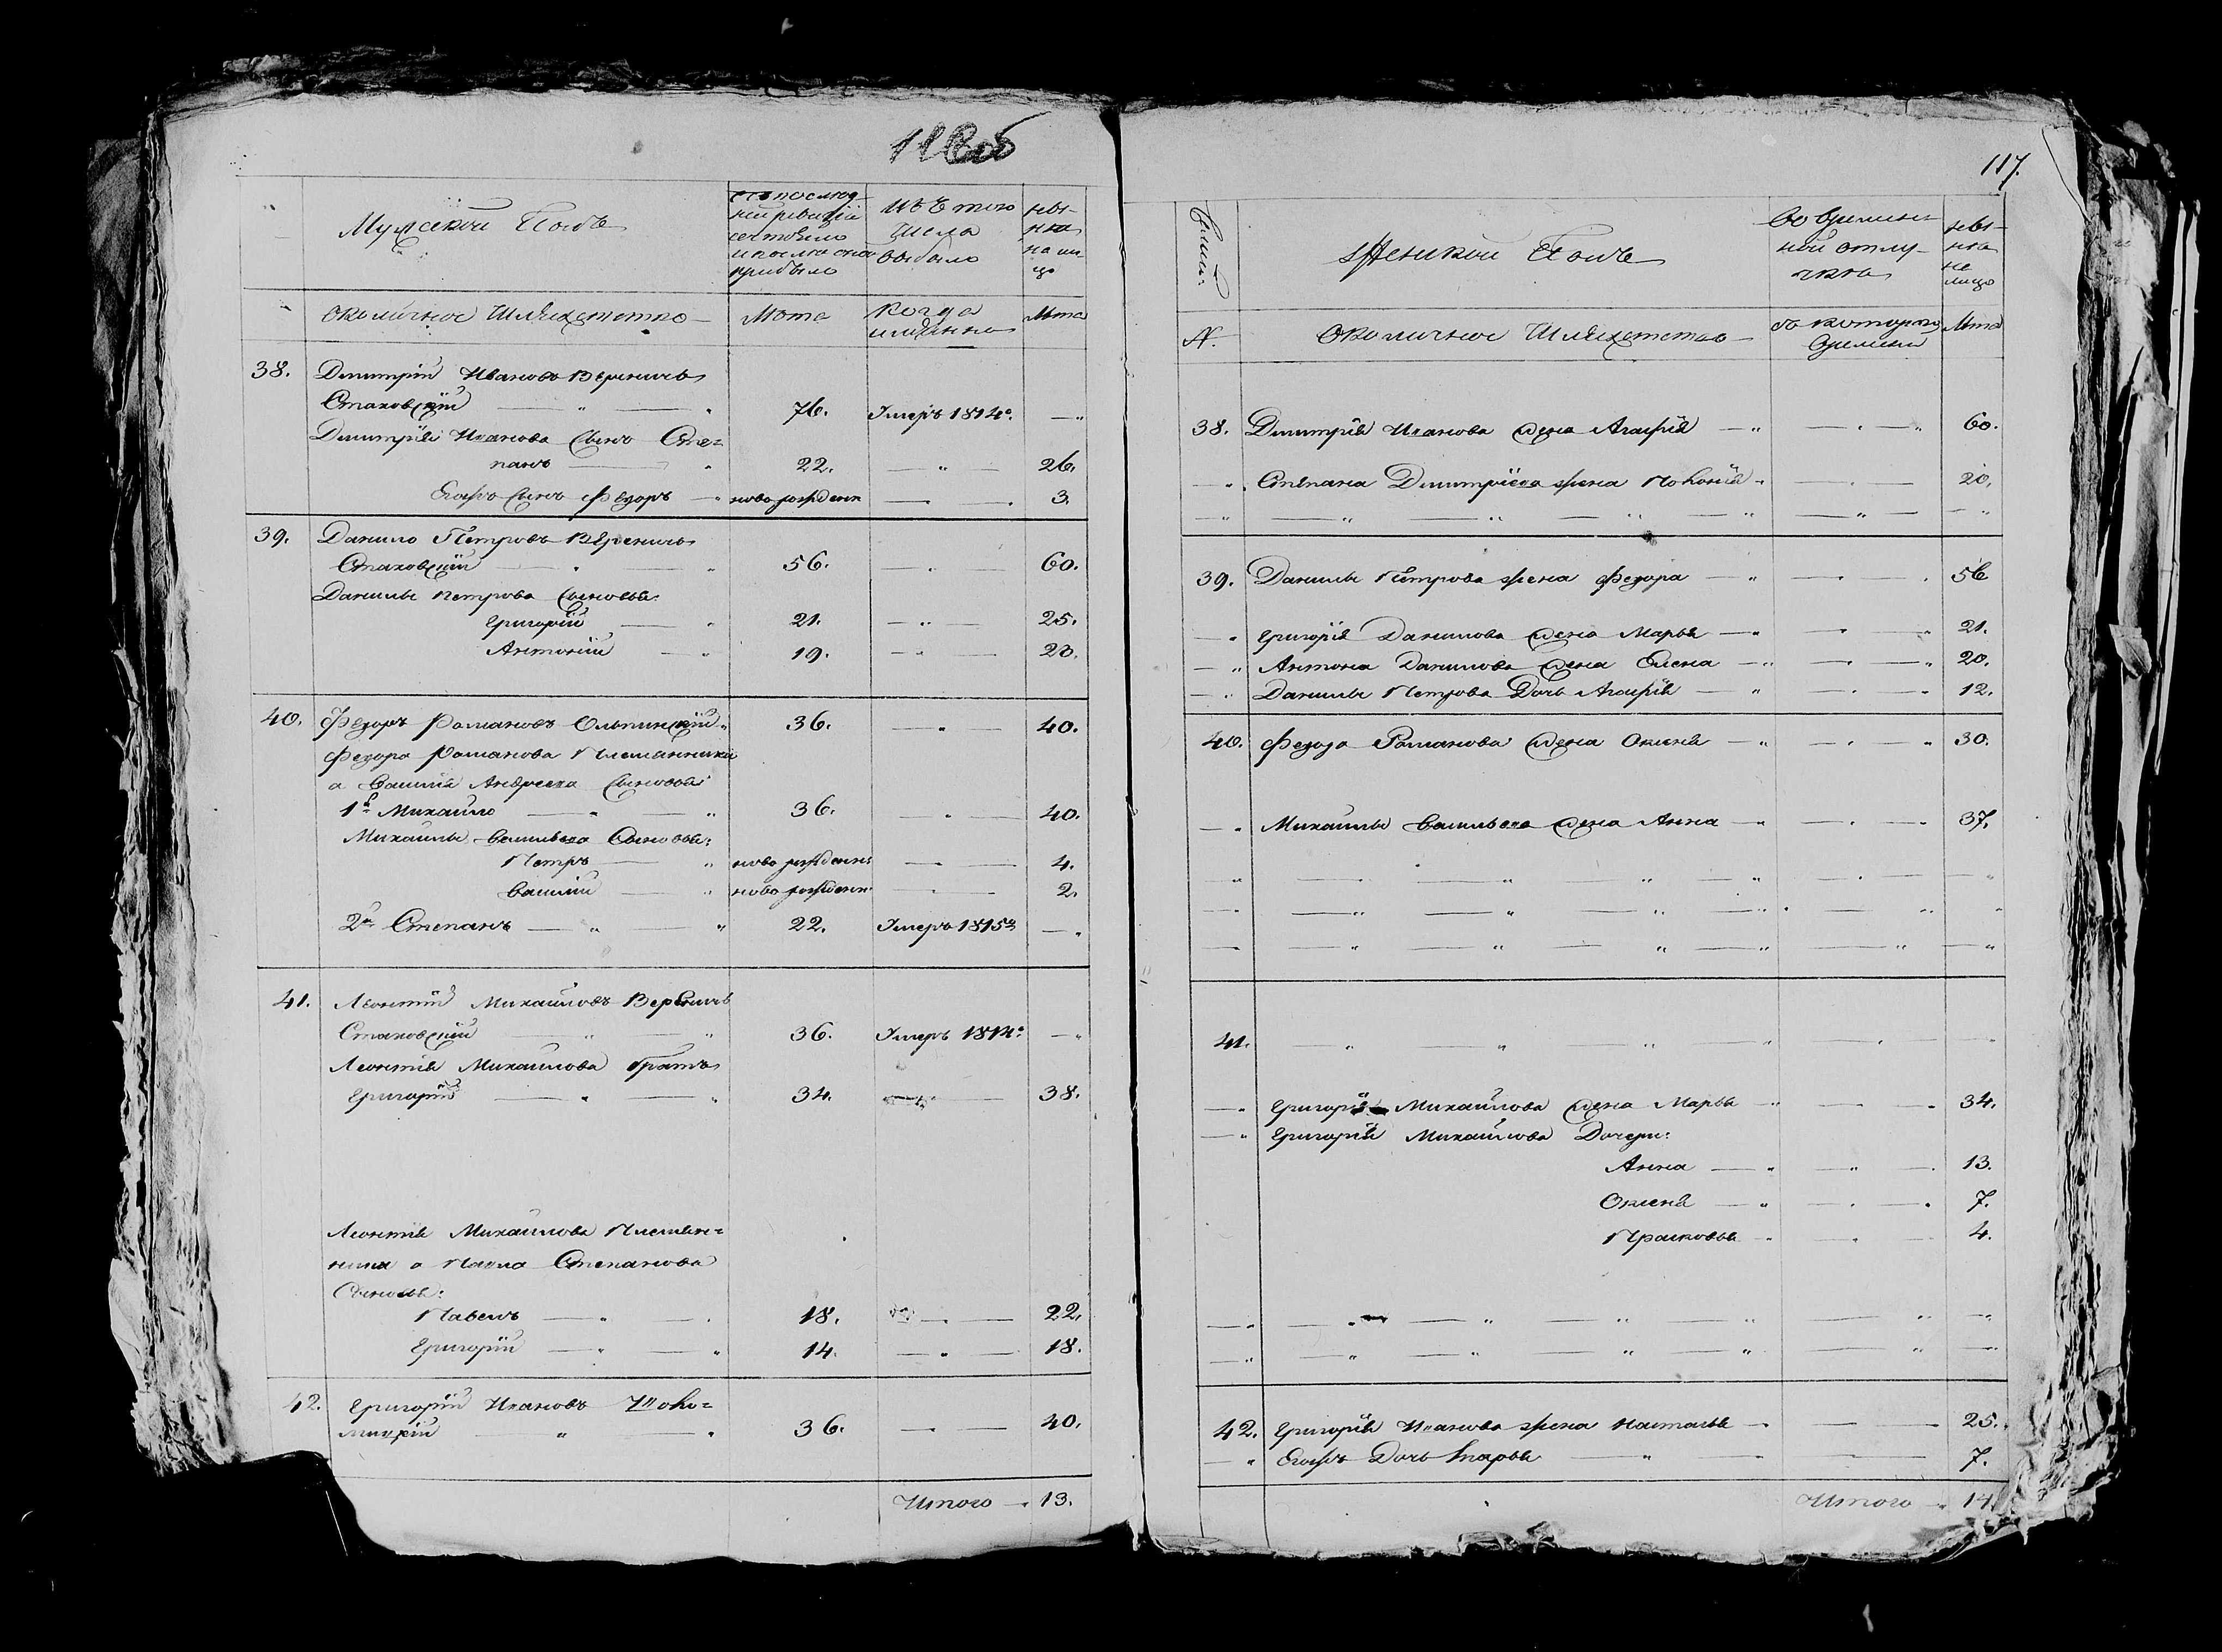 Мужеской Полъ
въ послѣд-
ней ревизіи
состояло
и послѣ оной
прибыло
изъ того
числа
выбыло
ныне
на ли
цо
околичное Шляхетство
Лѣта
когда
имянно
Лѣта
38. Дмитрій Ивановъ Вереничъ
Стаховскій — " — " 76. Умеръ 1814го. — "
Дмитрія Иванова сынъ Сте=
панъ — " 22. — " — 26.
Егожъ сынъ Федоръ — " новорожденн — . — . 3.
39. Данило Петровъ Вереничъ
Стаховскій — " — " 56. — . — 60.
Данилы Петрова сыновья:
Григорій — " 21. — " — 25.
Антоній — " 19. — " — 23.
40. Федоръ Романовъ Ольпинскій " 36. — " — 40.
Федора Романова Племянника
а Василія Андреева Сыновья
1й Михайло — " — " 36. — " — 40.
Михайлы Васильева Сыновья:
Петръ — " новорожденн: — . — 4.
Василій — " новорожденн: — . — 2.
2й Степанъ — " — " 22. Умеръ 1815го — "
41. Леонтій Михайловъ Вереничъ
Стаховскій — " — " 36. Умеръ 1814го: — "
Леонтія Михайлова братъ
Григорій — " — " 34. — " — 38.
Леонтія Михайлова Племян=
ника а Павла Степанова
Сыновья:
Павелъ — " — . 18. — . — 22.
Григорій — " — " 14. — " — 18.
42. Григорій Ивановъ
— " — " 36. — . — 40.
Итого — " 13.
117.
Женской Полъ
во времян-
ной отлу-
чке
ныне
на
лицо
N.
околичное Шляхетство
съ котораго
времени
Лѣта
38. Дмитрія Иванова жена Агафія — " — " — " 60.
— " Степана Дмитріева жена " — . — 20.
— " — " — " — " — " — " — — "
39. Данилы Петрова жена Федора — " — . . 56
— " Григорія Данилова жена Марья — " — " " 21.
— " Антона Данилова жена Елена — " — . — " 20.
— " Данилы Петрова Дочь Агафія — " — . — " 12.
40. Федора Романова жена Оксенія — " — . — " 30.
— " Михайлы Васильева жена Анна — " — . — " 37.
— " — . — " — " — " — . — — "
— " — " — " — " — " — " "
— " — " — " — " — " — " — "
41. — " — " — " — " — . — "
— " Григорія Михайлова жена Марья — " — . — " 34.
— " Григорія Михайлова Дочери:
Анна — " — " — . 13.
Оксенія — " — . — . 7.
Прасковья — " — . — 4.
— " — " — " — " — " — " — "
— " — " — " — " — " — " — "
42. Григорія Иванова жена Наталья — . — — " 25.
— " Егожъ Дочь Марья — " — — 7.
Итого — " 14.